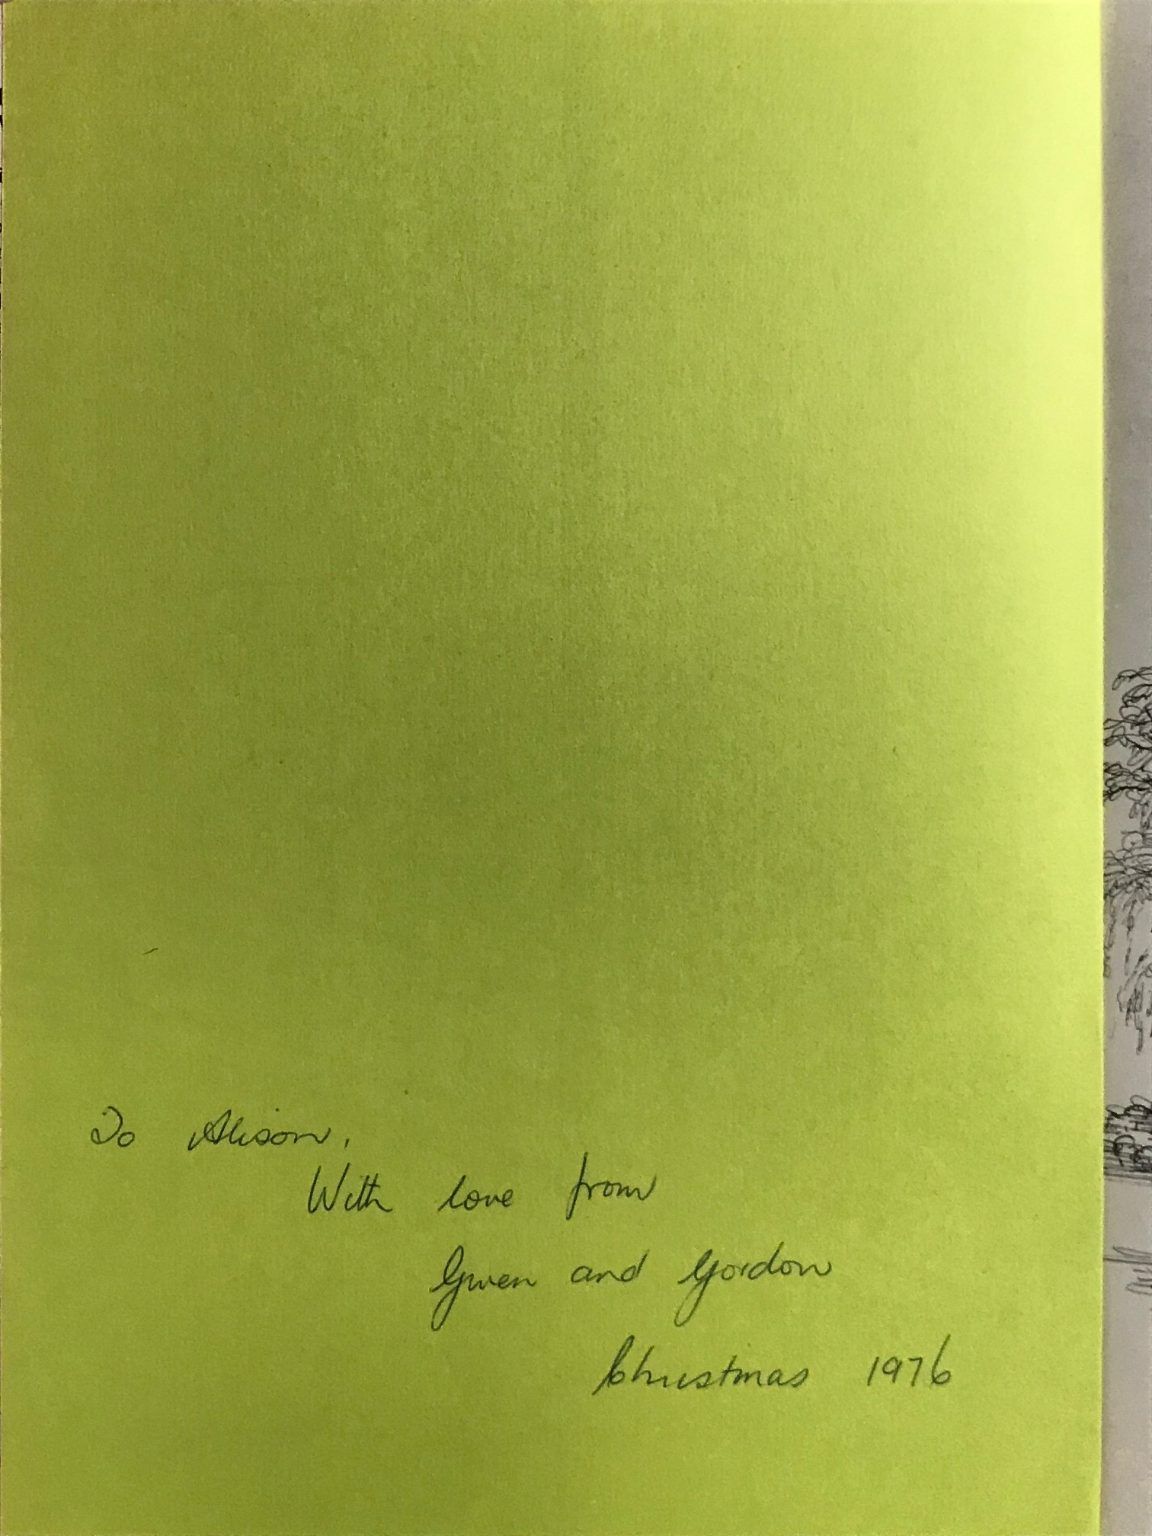 To Alison,
With love from
Gwen and Gordon
Christmas 1976